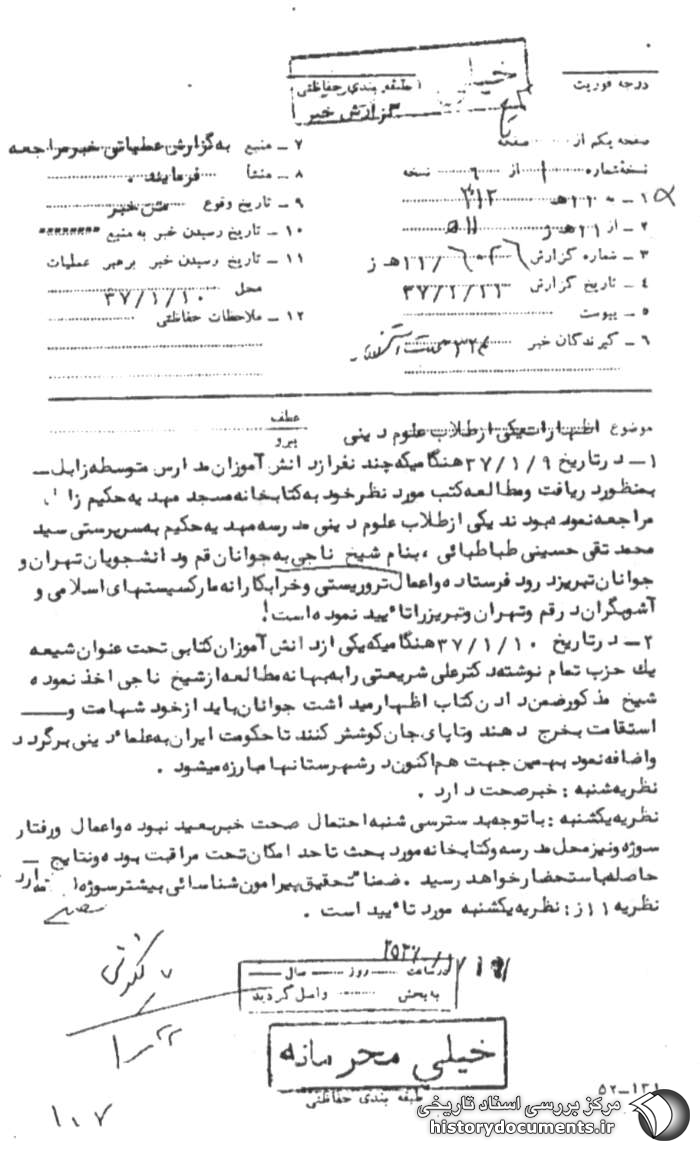 خیلی
طبقه بندی حفاظتی
گزارش خبر
درجه فوریت
صفحه یکم از صفحه
نسخه شماره ۱ از ۶ نسخه
۱ – به ۱۱۰ هـ ۳۱۲
۲ – از ۱۱ هـ ز
۳ – شماره گزارش ۱۱/ هـ ز
۴ – تاریخ گزارش ۳۷/۱/۲۲
۵ – پیوست
۶ – گیرندگان خبر
۷ – منبع به گزارش عملیاتی خبر مراجعه
۸ – منشأ فرمایند .
۹ – تاریخ وقوع متن خبر
۱۰ – تاریخ رسیدن خبر به منبع ״״״״״״״״
۱۱ – تاریخ رسیدن خبر برهبر عملیات
محل ۳۷/۱/۱۰
۱۲ – ملاحظات حفاظتی
موضوع اظهارات یکی از طلاب علوم دینی
عطف
پیرو
۱ – در تاریخ ۳۷/۱/۹ هنگامیکه چند نفر از دانش آموزان مدارس متوسطه زابل –
بمنظور دریافت ومطالعه کتب مورد نظر خود به کتابخانه مسجد مهدیه حکیم زا
مراجعه نموده بودند یکی از طلاب علوم دینی مدرسه مهدیه حکیم به سرپرستی سید
محمد تقی حسینی طباطبائی ، بنام شیخ ناجی به جوانان قم ودانشجویان تهران و
جوانان تبریز درود فرستاده واعمال تروریستی وخرابکارانه مارکسیستهای اسلامی و
آشوبگران در قم وتهران وتبریز را تائید نموده است !
۲ – در تاریخ ۳۷/۱/۱۰ هنگامیکه یکی از دانش آموزان کتابی تحت عنوان شیعه
یک حزب تمام نوشته دکتر علی شریعتی را به بهانه مطالعه از شیخ ناجی اخذ نموده
شیخ مذکور ضمن دادن کتاب اظهار میداشت جوانان باید از خود شهامت و –
استقامت بخرج دهند وتا پای جان کوشش کنند تا حکومت ایران به علماء دینی برگردد
واضافه نمود بهمین جهت هم اکنون در شهرستانها مبارزه میشود .
نظریه شنبه : خبر صحت دارد .
نظریه یکشنبه : با توجه بدسترسی شنبه احتمال صحت خبر بعید نبوده واعمال ورفتار
سوژه ونیز محل مدرسه وکتابخانه مورد بحث تا حد امکان تحت مراقبت بوده ونتایج –
حاصله باستحضار خواهد رسید . ضمنا" تحقیق پیرامون شناسائی بیشتر سوژه ادامه دارد
نظریه ۱۱ ز : نظریه یکشنبه مورد تائید است .
در ساعت روز سال
به بخش واصل گردید
خیلی محرمانه
طبقه بندی حفاظتی
۱۰۷
۱۳۱–۵۲
مرکز بررسی اسناد تاریخی
historydocuments.ir